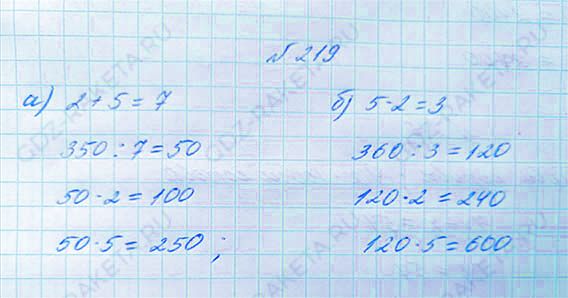 № 219
а) 2 + 5 = 7
350 : 7 = 50
50 · 2 = 100
50 · 5 = 250 ;
б) 5 - 2 = 3
360 : 3 = 120
120 · 2 = 240
120 · 5 = 600
GDZ-RAKETA.RU